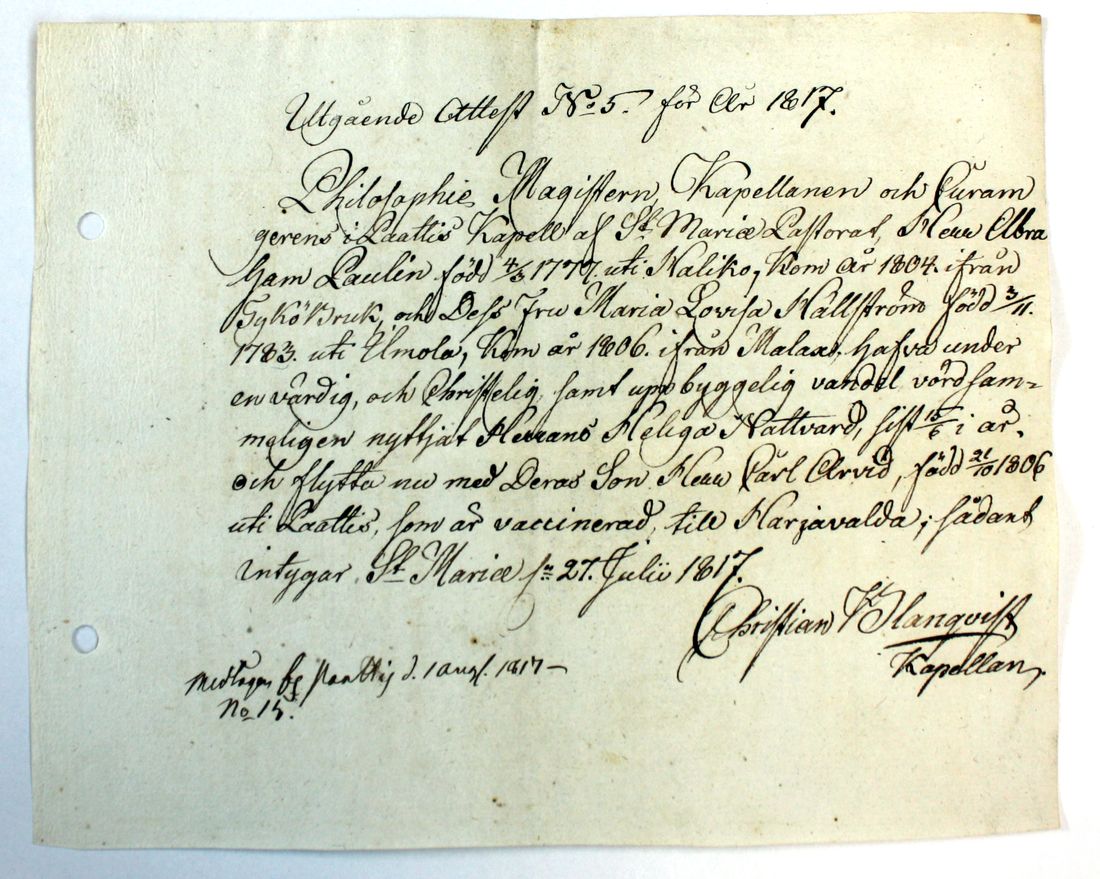 Utgående Attest No 5. för År 1817.
Philosophie Magistern, Kapellanen och Curam
gerens i Paattis Kapell af St. Mariæ Pastorat, Herr Abra
ham Paulin född 4/3 1777. uti Haliko, kom år 1804. ifrån
Tykö Bruk, och Dess Fru Maria Lovisa Hällström född 3/11.
1783. uti Ilmola, kom år 1806. ifrån Malax, hafva under
en värdig, och Christelig, samt uppbyggelig vandel vördsam=
meligen nyttjat Herrans Heliga Nattvard, sist 15/6 i år.
och flytta nu med Deras Son Herr Carl Arvid, född 21/10 1806
uti Paattis, som är vaccinerad, till Harjavalda; sådant
intygar St. Mariæ 27. Julii 1817.
Christian Slanqvist
Kapellan.
Paattis d. 1 aug. 1817 –
No 15.